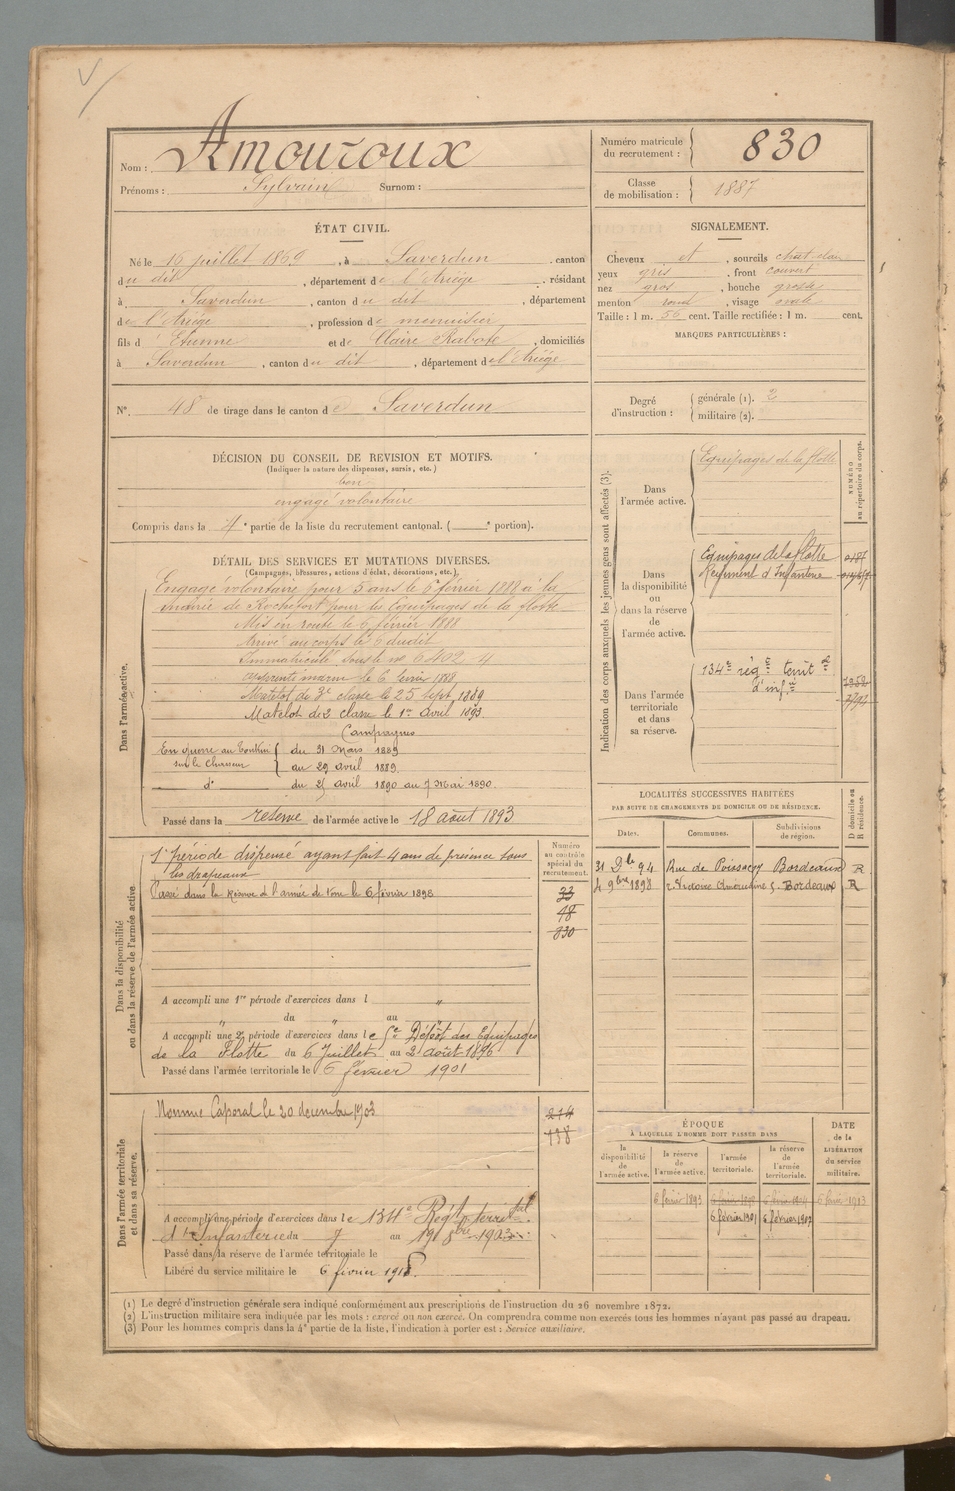 Nom : Amouroux
Prénoms : Sylvain Surnom :
Numéro matricule du recrutement : 830
Classe de mobilisation : 1887
ÉTAT CIVIL.
Né le 16 juillet 1869, à Saverdun, canton
du dit, département de l'Ariège, résidant
à Saverdun, canton du dit, département
de l'Ariège, profession de menuisier
fils d'Etienne et de Claire Rabote, domiciliés
à Saverdun, canton du dit, département de l'Ariège
SIGNALEMENT.
Cheveux et, sourcils chatelain
yeux gris, front couvert
nez gros, bouche grosse
menton rond, visage ovale
Taille : 1 m. 56 cent. Taille rectifiée : 1 m. cent.
MARQUES PARTICULIÈRES :
N°. 48 de tirage dans le canton de Saverdun
Degré d'instruction : générale (1). 2
militaire (2).
DÉCISION DU CONSEIL DE REVISION ET MOTIFS.
(Indiquer la nature des dispenses, sursis, etc.)
bon
engagé volontaire
Compris dans la 4e partie de la liste du recrutement cantonal. ( e portion).
DÉTAIL DES SERVICES ET MUTATIONS DIVERSES.
(Campagnes, blessures, actions d'éclat, décorations, etc.)
Dans l'armée active.
Engagé volontaire pour 5 ans le 6 février 1888 à la
mairie de Rochefort pour les Equipages de la flotte
Mis en route le 6 février 1888
Arrivé au corps le 6 dudit
Immatriculé sous le no 6402 4
apprenti marin le 6 février 1888
Matelot de 3e classe le 25 sept 1889
Matelot de 2 classe le 1er avril 1893
Campagnes
En guerre au Tonkin du 31 Mars 1889
sur le au 29 avril 1889
do du 25 avril 1890 au 7 Mai 1890
Passé dans la réserve de l'armée active le 18 août 1893
Dans la disponibilité ou dans la réserve de l'armée active
1e période dispensé ayant fait 4 ans de présence sous
les drapeaux
Passé dans la Réserve de l'armée de Terre le 6 février 1898
A accompli une 1re période d'exercices dans l "
du " au "
A accompli une 2e période d'exercices dans le 5e Dépôt des Equipages
de la Flotte du 6 Juillet au 2 août 1896
Passé dans l'armée territoriale le 6 février 1901
Numéro au contrôle spécial du recrutement.
33
48
830
Dans l'armée territoriale et dans sa réserve.
Nommé Caporal le 20 décembre 1903
214
138
A accompli une période d'exercices dans le 134e Régt territal
d'Infanterie du 7 au 19 8bre 1903
Passé dans la réserve de l'armée territoriale le
Libéré du service militaire le 6 février 1913
Indication des corps auxquels les jeunes gens sont affectés (3).
NUMÉRO au répertoire du corps.
Dans l'armée active.
Equipages de la flotte
Dans la disponibilité ou dans la réserve de l'armée active.
Equipages de la flotte
Régiment d'Infanterie
Dans l'armée territoriale et dans sa réserve.
134e régt territal
d'infrie
LOCALITÉS SUCCESSIVES HABITÉES
PAR SUITE DE CHANGEMENTS DE DOMICILE OU DE RÉSIDENCE.
D domicile ou R résidence.
Dates. Communes. Subdivisions de région.
31 Dbre 94 Rue de Poissac Bordeaux R
4 9bre 1898 r Victoire Américaine 5 Bordeaux R
ÉPOQUE
À LAQUELLE L'HOMME DOIT PASSER DANS
DATE de la LIBÉRATION du service militaire.
la disponibilité de l'armée active.
la réserve de l'armée active.
l'armée territoriale.
la réserve de l'armée territoriale.
6 février 1893
6 février 1901 6 février 1907
6 février 1913
(1) Le degré d'instruction générale sera indiqué conformément aux prescriptions de l'instruction du 26 novembre 1872.
(2) L'instruction militaire sera indiquée par les mots : exercé ou non exercé. On comprendra comme non exercés tous les hommes n'ayant pas passé au drapeau.
(3) Pour les hommes compris dans la 4e partie de la liste, l'indication à porter est : Service auxiliaire.